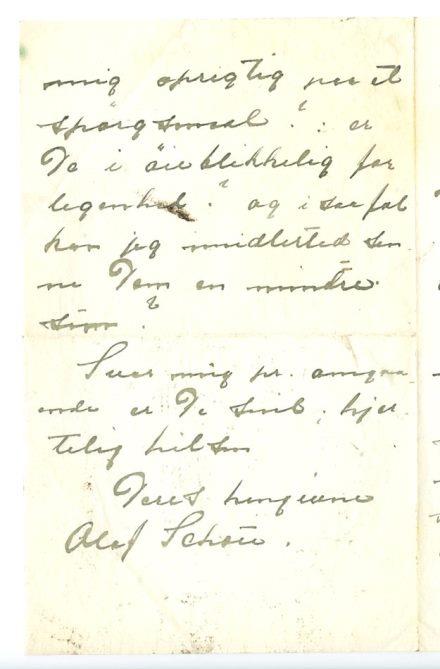 mig oprigtig paa et
spørgsmaal? : er
De i øieblikkelig for
legenhed? og i saa fal
kan jeg midlertid sen
ne Dem en mindre
sum?
Svar mig pr. omgaa
ende er De snil, hjer
telig hilsen
Deres hengivne
Olaf Schou.